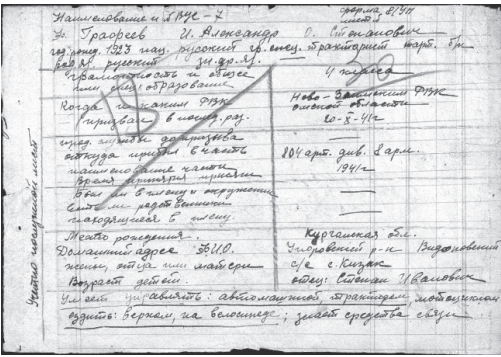 Наименование и № ВУС - 7
форма 8/УП
лист 1
Ф. Графеев И. Александр О. Степанович
год. рожд. 1923 нац. русский гр. спец. тракторист парт. б/п
род. яз. русский зн. др. яз.
Грамотность и общее
или спец. образование
4 класса
Когда и каким РВК
призван в послед. раз.
Ново- РВК
Омской области
20-X-41 г
прод. службы до призыва
откуда прибыл в часть
наименование части
804 арт. див. 8 арм.
1941 г
Время принятия присяги
Был ли в плену и окружении
есть ли родственники
находящиеся в плену.
Место рождения.
Курганская обл.
Домашний адрес Ф.И.О.
Упоровский р-н
жены, отца или матери
с/с с. Кизак
Возраст детей.
отец: Степан Иванович
Умеет управлять: автомашиной, трактором, мотоциклом
ездить: верхом, на велосипеде; знает средства связи
Учетно послужной лист